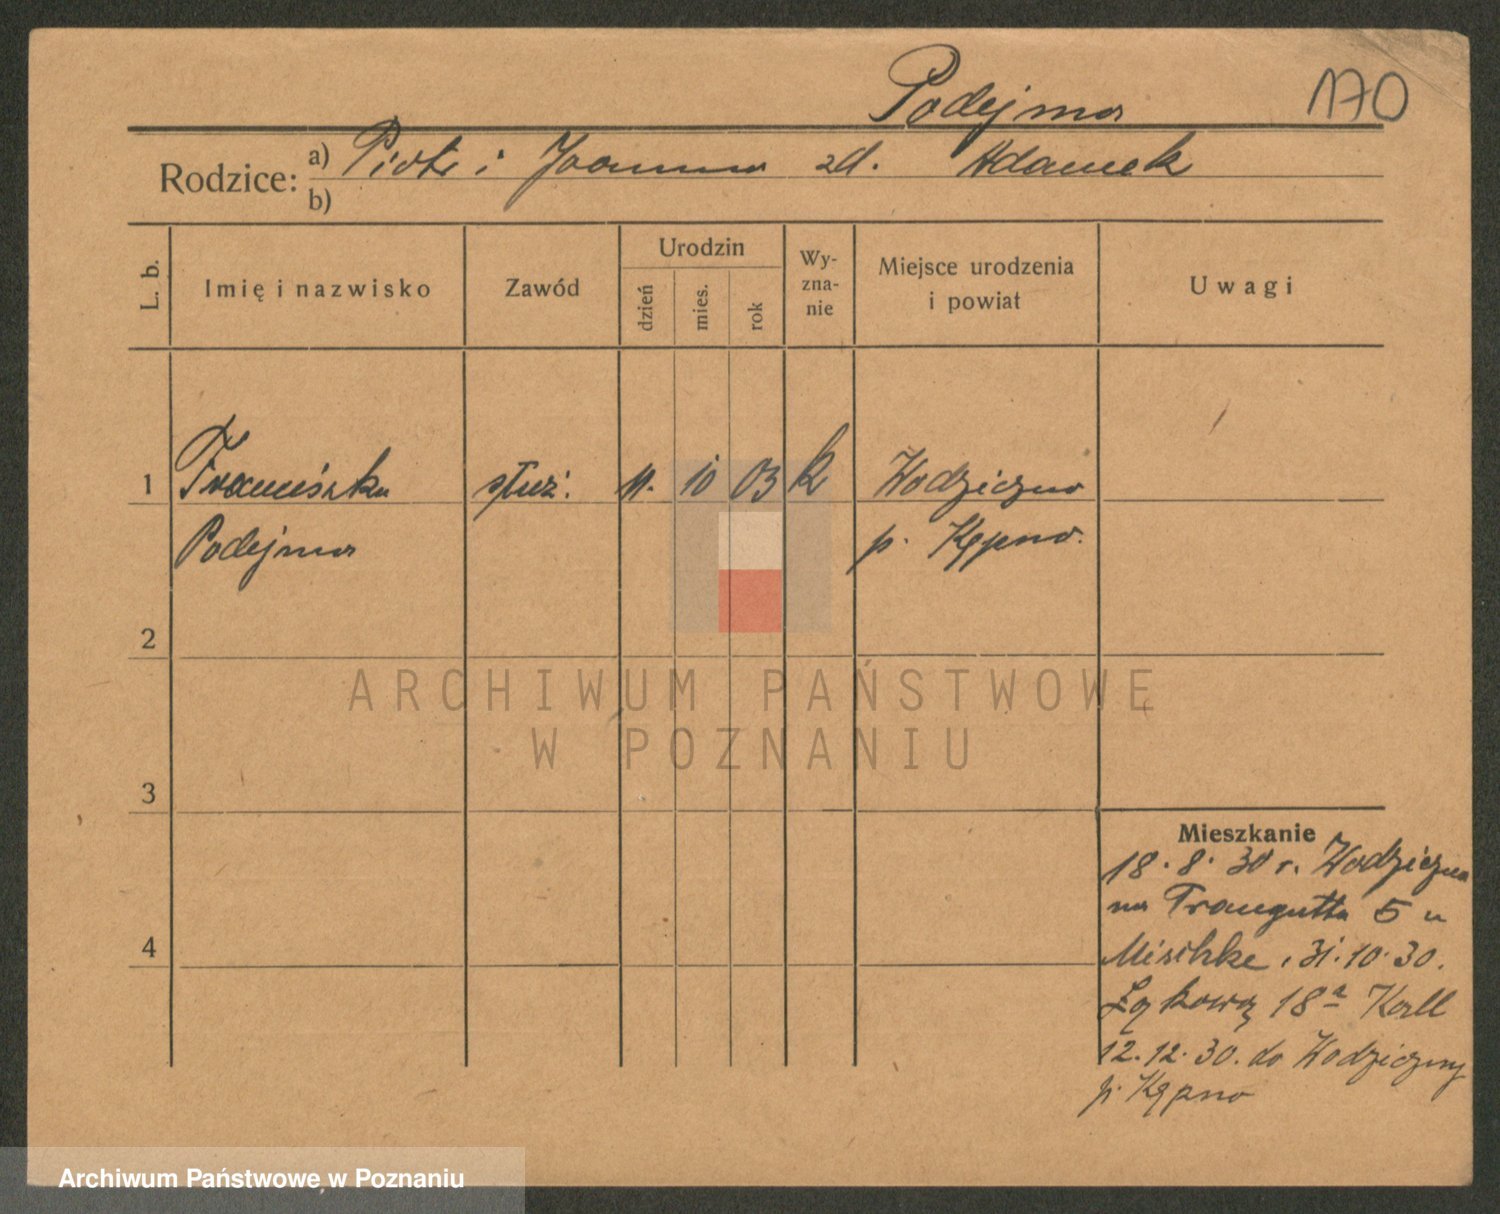 Podejma
170
Rodzice: a) Piotr i Joanna zd. Adamek
b)
L. b.
Imię i nazwisko
Zawód
Urodzin
dzień
mies.
rok
Wy-
zna-
nie
Miejsce urodzenia
i powiat
Uwagi
1 Franciszka służ. 11. 10 03 k Wodziczna
Podejma p. Kępno.
2
3
4
ARCHIWUM PAŃSTWOWE
W POZNANIU
Mieszkanie
18. 8. 30 r. Wodziczna
na Traugutta 5 u
Mischke, 31. 10. 30.
Łąkową 18a Kall
12. 12. 30. do Wodziczny
p. Kępno
Archiwum Państwowe w Poznaniu